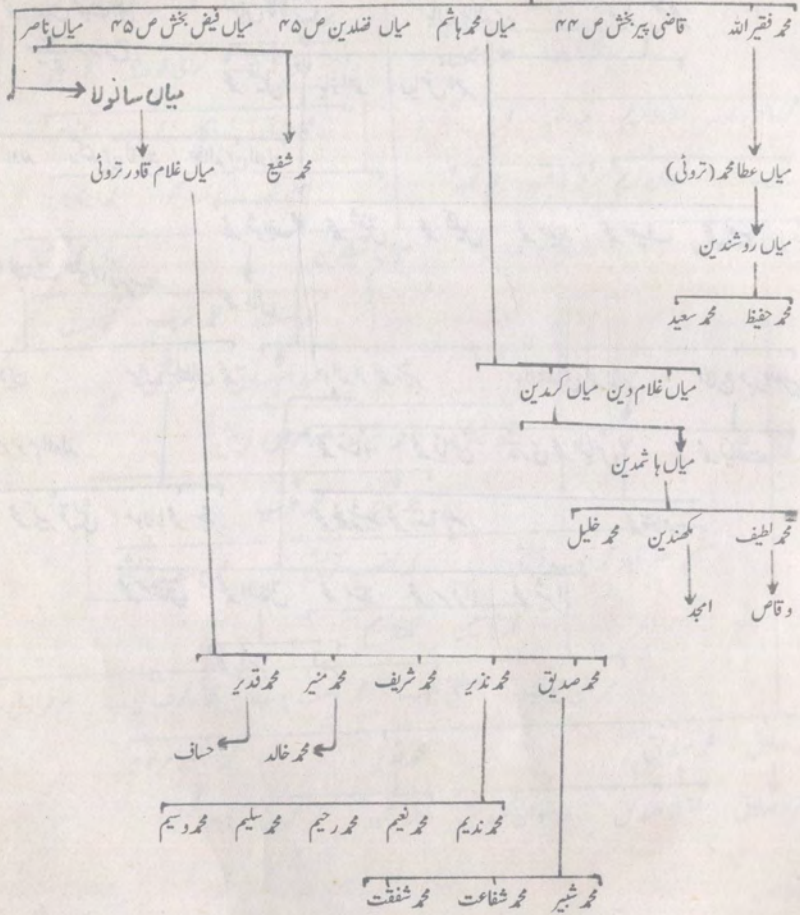 محمد فقیر اللہ قاضی پیر بخش ص ۴۴ میاں محمد ہاشم میاں فضلدین ص ۴۵ میاں فیض بخش ص ۴۵ میاں ناصر
میاں سانولا
میاں عطا محمد (تروئی) محمد شفیع میاں غلام قادر تروئی
میاں روشندین
محمد حفیظ محمد سعید
میاں غلام دین میاں کرمدین
میاں ہاشمدین
محمد لطیف مکھندین محمد خلیل
وقاص امجد
محمد صدیق محمد نذیر محمد شریف محمد منیر محمد قدیر
محمد خالد حساف
محمد ندیم محمد نعیم محمد رحیم محمد سلیم محمد وسیم
محمد شبیر محمد شفاعت محمد شفقت